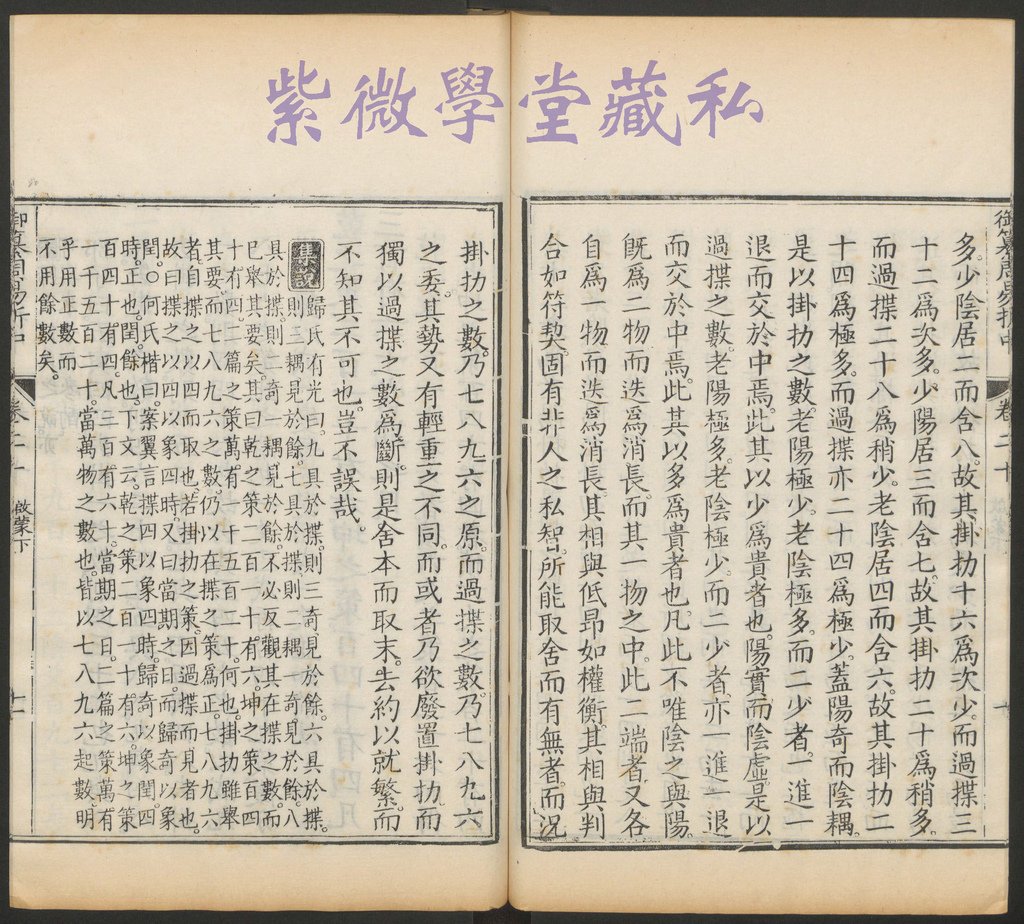 紫微學堂藏私
御纂周易折中
卷二十
多。少陰居二而含八。故其掛扐十六爲次少。而過揲三
十二爲次多。少陽居三而含七。故其掛扐二十爲稍多。
而過揲二十八爲稍少。老陰居四而含六。故其掛扐二
十四爲極多。而過揲亦二十四爲極少。蓋陽奇而陰耦。
是以掛扐之數。老陽極少。老陰極多。而二少者。一進一
退而交於中焉。此其以少爲貴者也。陽實而陰虛。是以
過揲之數。老陽極多。老陰極少。而二少者。亦一進一退
而交於中焉。此其以多爲貴者也。凡此不唯陰之與陽。
旣爲二物而迭爲消長。而其一物之中。此二端者。又各
自爲一物而迭爲消長。其相與低昂如權衡。其相與判
合如符契。固有非人之私智。所能取舍而有無者。而況
掛扐之數。乃七八九六之原。而過揲之數。乃七八九六
之委。其勢又有輕重之不同。而或者乃欲廢置掛扐。而
獨以過揲之數爲斷。則是舍本而取末。去約以就繁。而
不知其不可也。豈不誤哉。
集說 歸氏有光曰。九具於揲。則三奇見於餘。六具於揲。
則三耦見於餘。七具於揲。則二耦一奇見於餘。八
具於揲。則二奇一耦見於餘。不必反觀其在揲之數。而
已舉其要矣。其曰乾之策二百一十有六。坤之策百四
十有四。二篇之策萬有一千五百二十。何也。掛扐雖舉
其要。而七八九六之數。仍以在揲之策爲正。七八九六
者。自揲之以四而取也。若掛扐之策。因過揲而見者也。
故曰揲之以四以象四時。又曰當期之日。而歸奇以象
閏。○何氏楷曰。案翼言揲四以象四時。歸奇以象閏。四
時。正也。閏。餘也。下文云。乾之策二百一十有六。坤之策
百四十有四。凡三百有六十。當期之日。二篇之策。萬有
一千五百二十。當萬物之數也。皆以七八九六起數。明
乎用正數而
不用餘數矣。
御纂周易折中
卷二十 啟蒙下
十一